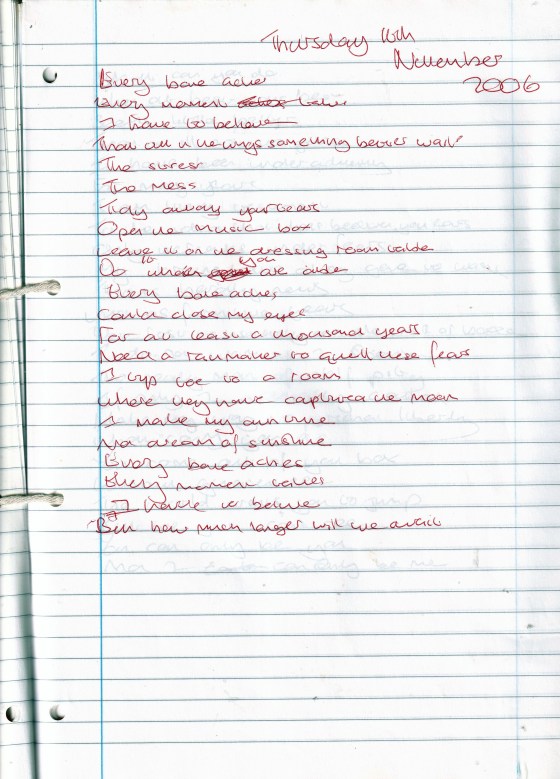 Thursday 16th
November
2006
Every bone aches
Every moment takes
I have to believe
That all in the wings something better waits
The stress
The mess
Tidy away your tears
Open the music box
Leave it on the dressing room table
Do to whom you are able
Every bone aches
Could close my eyes
For at least a thousand years
Need a rainmaker to quell these fears
I tip toe to a room
Where they have captured the moon
I make my own wine
No dream of sunshine
Every bone aches
Every moment takes
I have to believe
But how much longer will we await